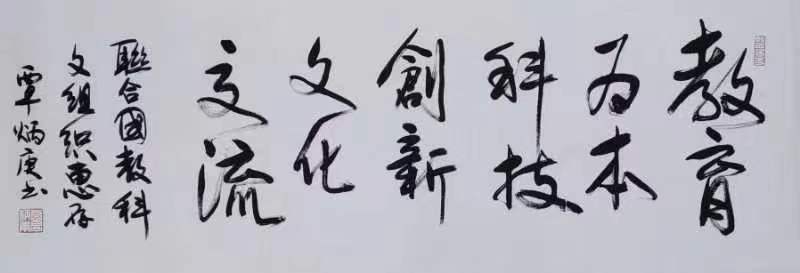 教育
为本
科技
創新
文化
交流
聯合國教科
文组织惠存
覃炳庚书